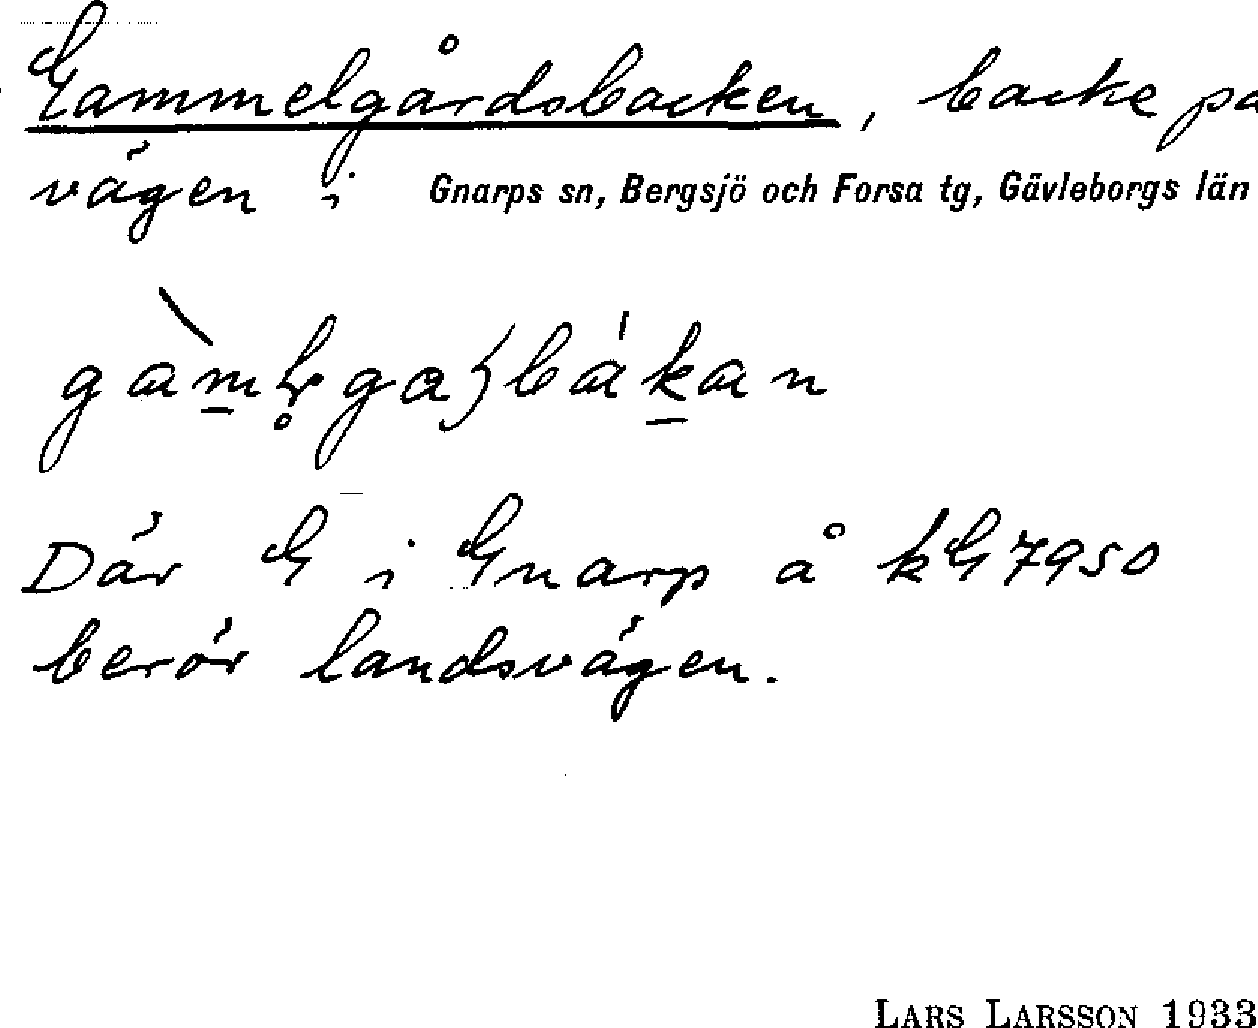 Gammelgårdsbacken, backe på
vägen i Gnarps sn, Bergsjö och Forsa tg, Gävleborgs län
Där G i Gnarp å kG7950
berör landsvägen.
LARS LARSSON 1933